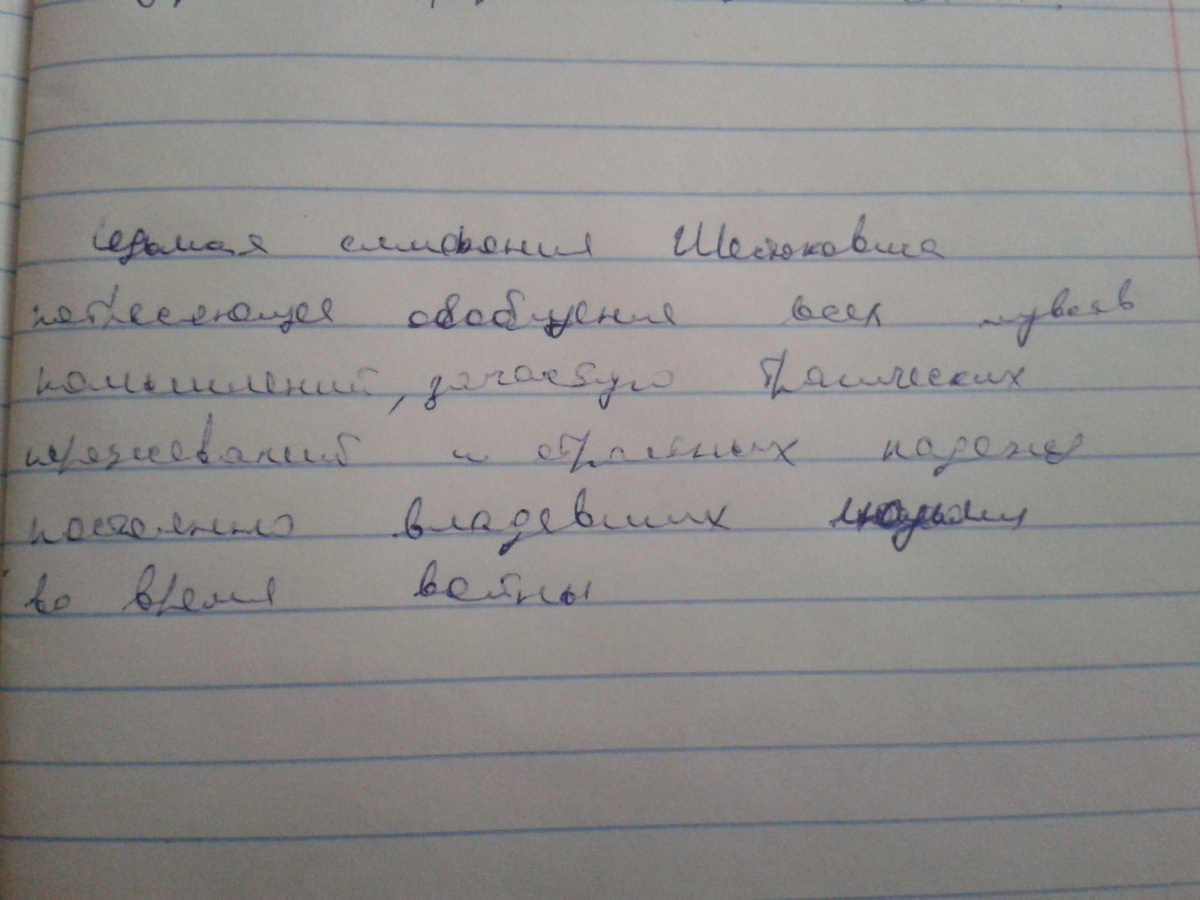 седьмая симфония Шестоковша
потресяющея обобщения всех чувств
помышлений, зачастую трагических
переживаний и страстных надежд
постоянно владевших людьми
во время войны